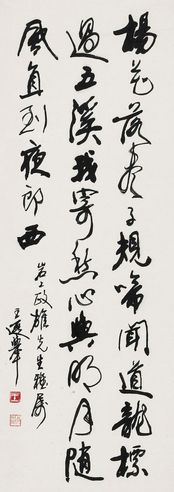 楊花落盡子規啼聞道龍標
過五溪我寄愁心與明月隨
風直到夜郎西
岩上政雄先生雅属
王遐舉